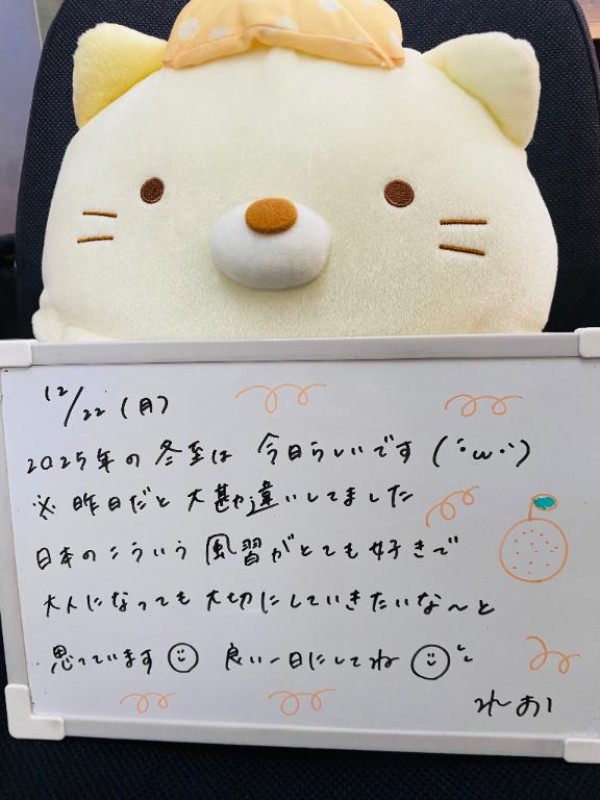 12/22(月)
2025年の冬至は 今日らしいです(´・ω・`)
※昨日だと大勘違いしてました
日本のこういう風習がとても好きで
大人になっても大切にしていきたいな〜と
思っています 良い一日にしてね